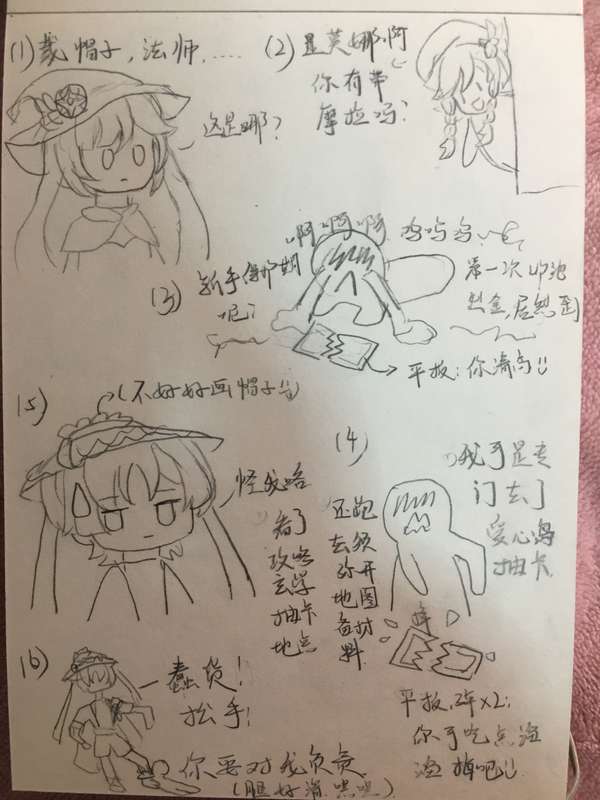 (1)戴帽子，法师……
这是哪？
(2)是莫娜啊
你有带
摩拉吗？
(3)
新手保护期
呢？
啊啊啊
呜呜呜
第一次 up池
出金，居然歪
平板：你清高!!
(4)
我可是专
门去了
爱心岛
抽卡
还跑
去须
弥开
地图
备材
料
碎
平板，碎x2：
你可吃点溜
溜梅吧!!
(5)
(不好好画帽子!!)
怪我咯
看了
攻略
玄学
抽卡
地点
(6)
蠢货！
松手！
你要对我负责